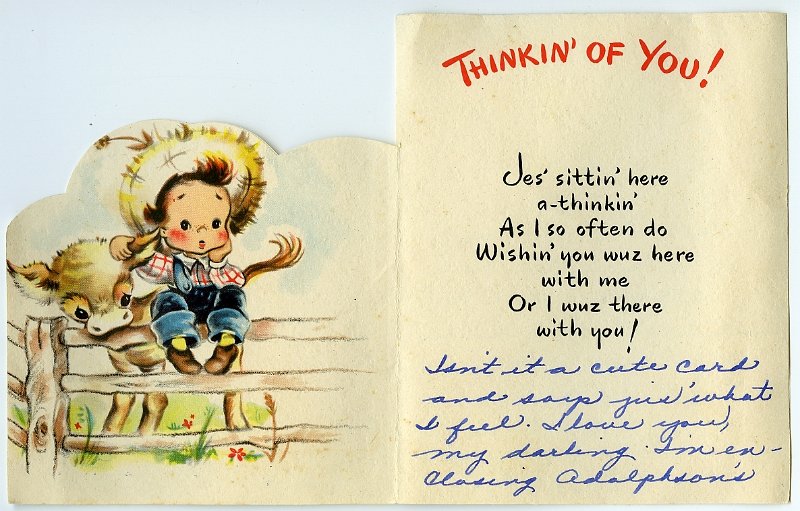 THINKIN' OF YOU!
Jes' sittin' here
a-thinkin'
As I so often do
Wishin' you wuz here
with me
Or I wuz there
with you!
Isn't it a cute card
and says jus' what
I feel. I love you,
my darling. I'm en-
closing Adolphson's